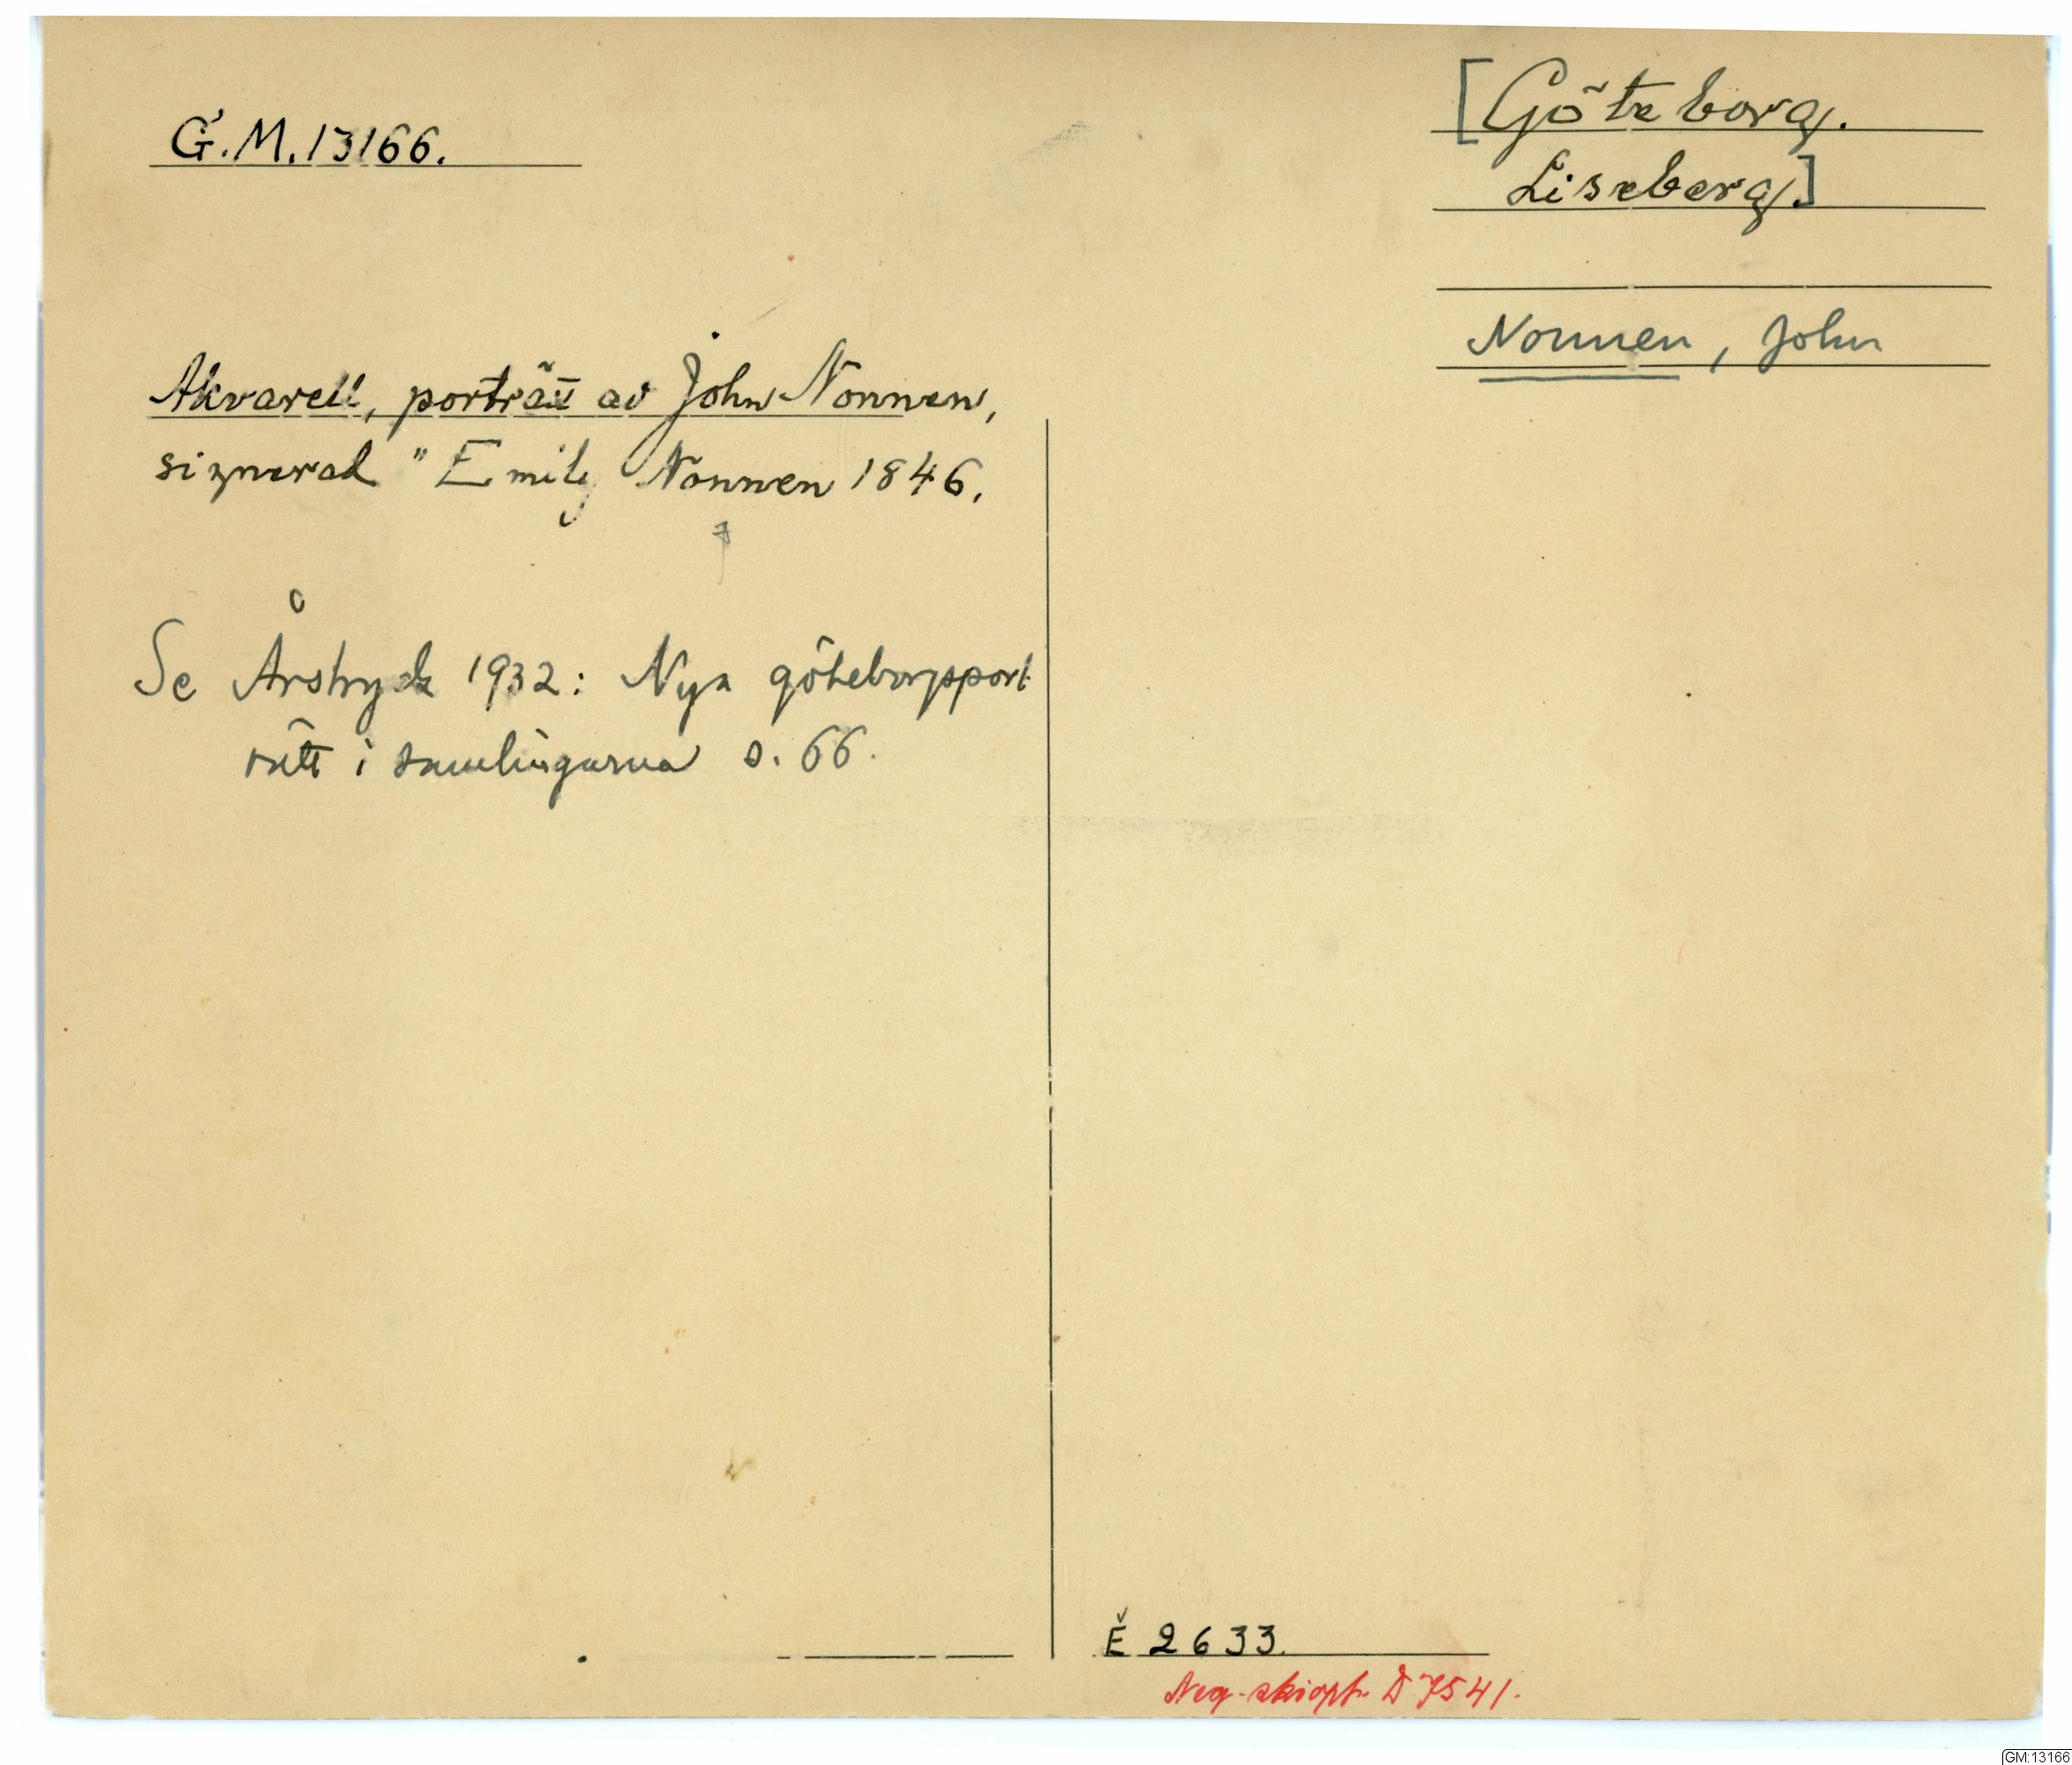 G.M.13166.
[Göteborg.
Liseberg.]
Nonnen, John
Akvarell, porträtt av John Nonnen,
signerad "Emily Nonnen 1846.
Se Årstryck 1932: Nya göteborgsport
rätt i samlingarna s. 66.
E 2633.
Neg-skiopt. D 7541.
GM:13166